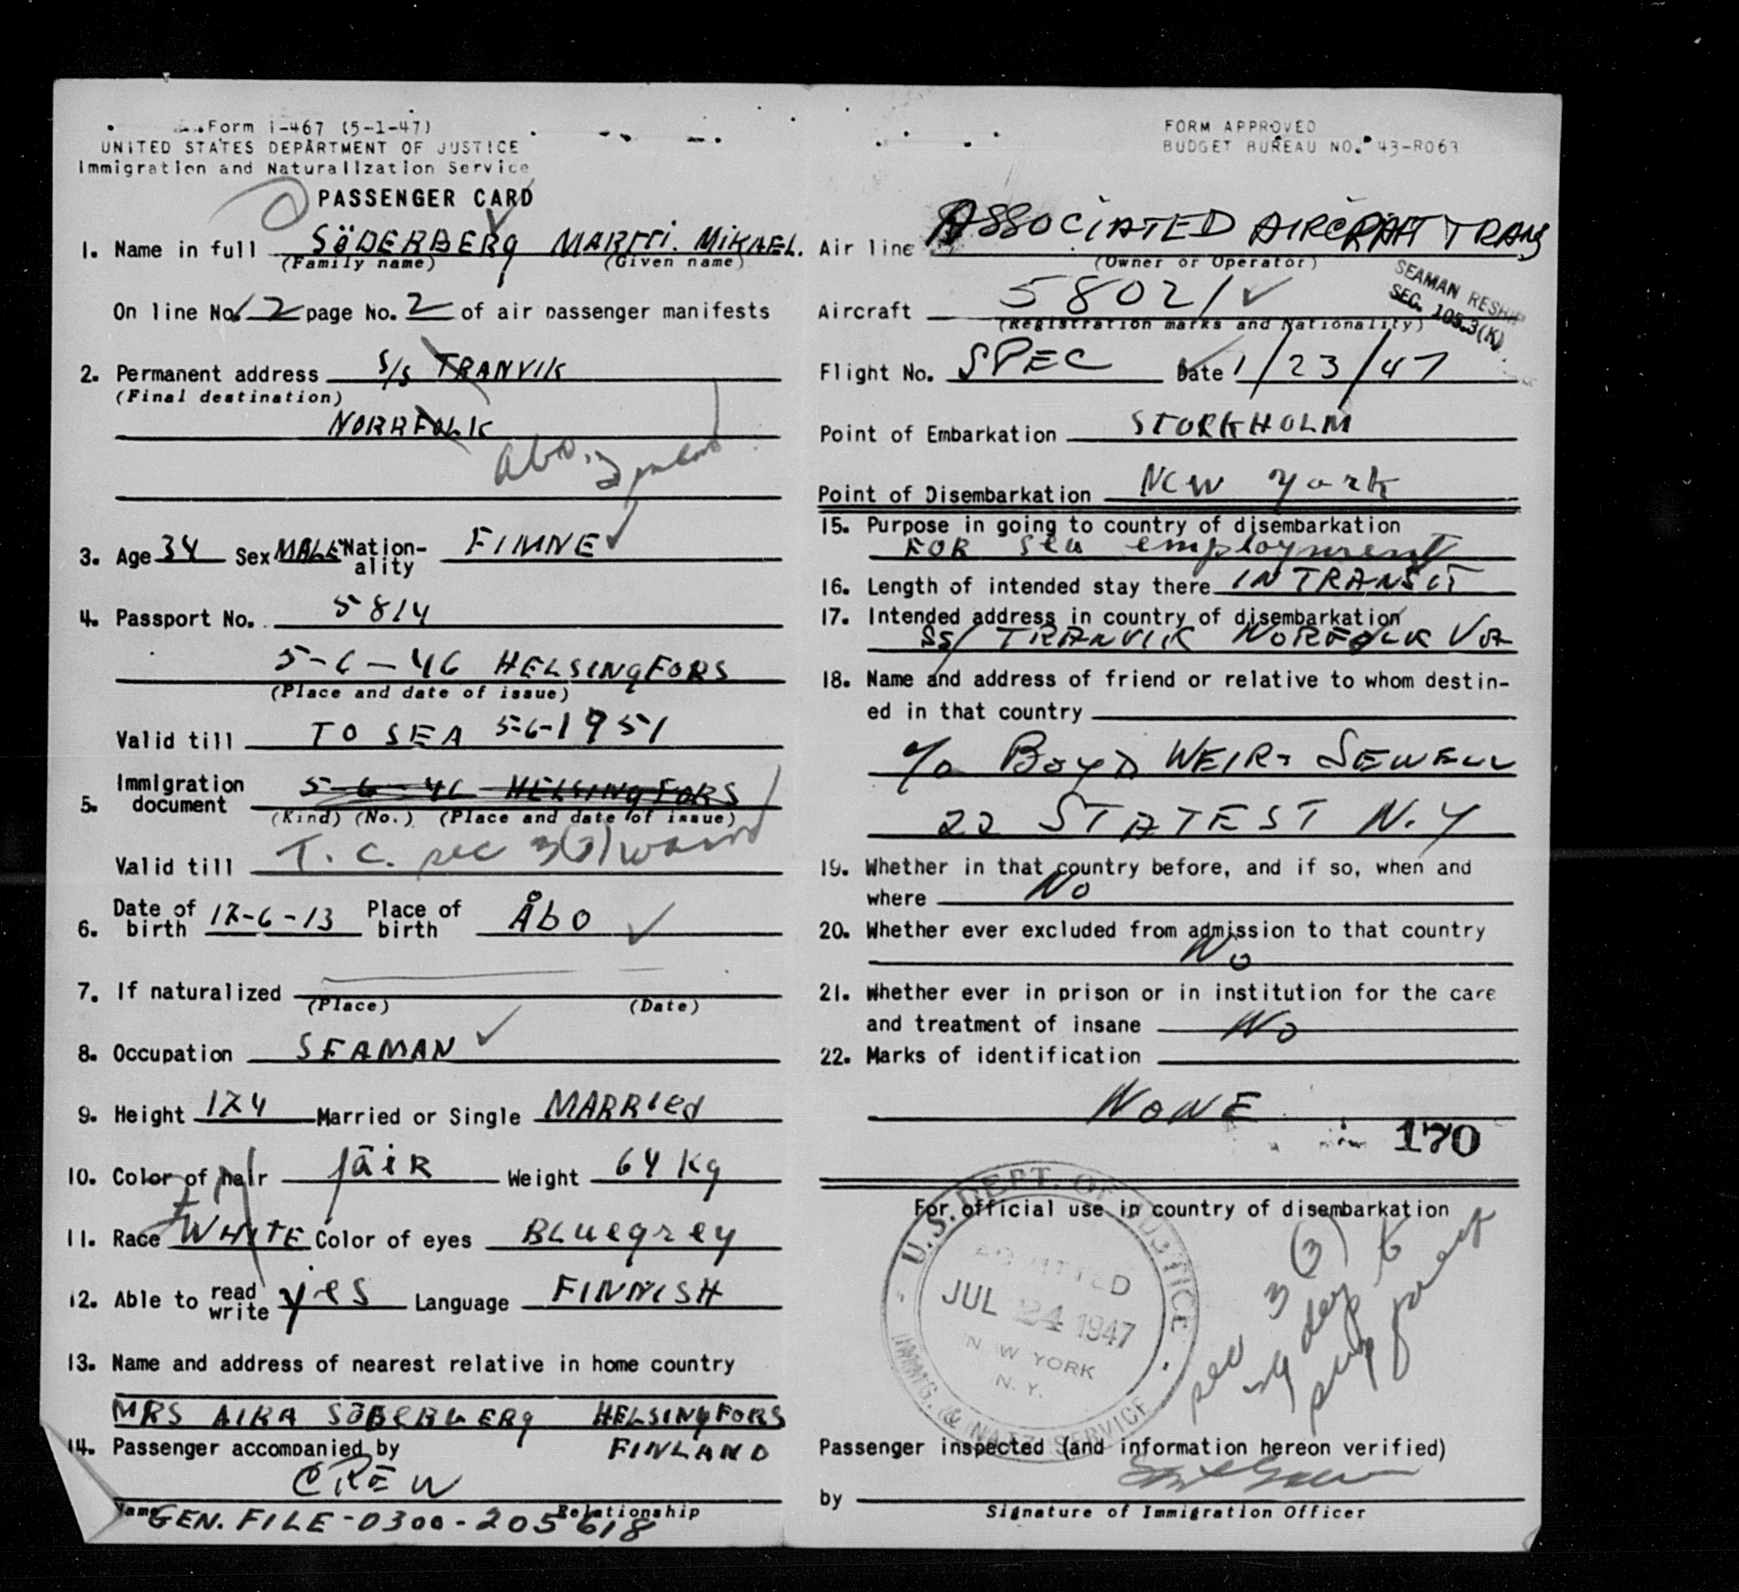 Form I-467 (5-1-47)
UNITED STATES DEPARTMENT OF JUSTICE
Immigration and Naturalization Service
PASSENGER CARD
1. Name in full SöDERBERg MARTTi. MIKAEL.
(Family name) (Given name)
On line No. 2 page No. 2 of air passenger manifests
2. Permanent address S/S TRANVIK
(Final destination)
NORRFOLK
3. Age 34 Sex MALE Nationality FINNE
4. Passport No. 5814
5-6-46 HELSINgFORS
(Place and date of issue)
Valid till TO SEA 5-6-1951
5. Immigration document 5-6-46 HELSINgFORS
(Kind) (No.) (Place and date of issue)
Valid till T.C. sec 3(3)
6. Date of birth 17-6-13 Place of birth Åbo
7. If naturalized
(Place) (Date)
8. Occupation SEAMAN
9. Height 174 Married or Single MARRIed
10. Color of hair fäiR Weight 64 Kg
11. Race WHITE Color of eyes BLuegrey
12. Able to read write yes Language FINNISH
13. Name and address of nearest relative in home country
MRS AIRA SöDERBERg HELSINgFORS
FINLAND
14. Passenger accompanied by
CREW
Name Relationship
GEN. FILE-0300-205618
FORM APPROVED
BUDGET BUREAU NO. 43-R063
Air line ASSOCIATED AIRCRAFT TRANS
(Owner or Operator)
SEAMAN RESHIP
SEC. 105.3(K)
Aircraft 58021
(Registration marks and Nationality)
Flight No. SPEC Date 1/23/47
Point of Embarkation STOCKHOLM
Point of Disembarkation NEW york
15. Purpose in going to country of disembarkation
FOR sea employment
16. Length of intended stay there IN TRANSIT
17. Intended address in country of disembarkation
SS/ TRANVIK NORFOLK Va
18. Name and address of friend or relative to whom destin-
ed in that country
c/o BoyD WEIR- SEWELL
22 STATE ST N.Y
19. Whether in that country before, and if so, when and
where No
20. Whether ever excluded from admission to that country
No
21. Whether ever in prison or in institution for the care
and treatment of insane No
22. Marks of identification
NONE
170
For official use in country of disembarkation
U.S. DEPT. OF JUSTICE
ADMITTED
JUL 24 1947
NEW YORK
N.Y.
IMMIG. & NATZ. SERVICE
sec 3(3)
Passenger inspected (and information hereon verified)
by
Signature of Immigration Officer